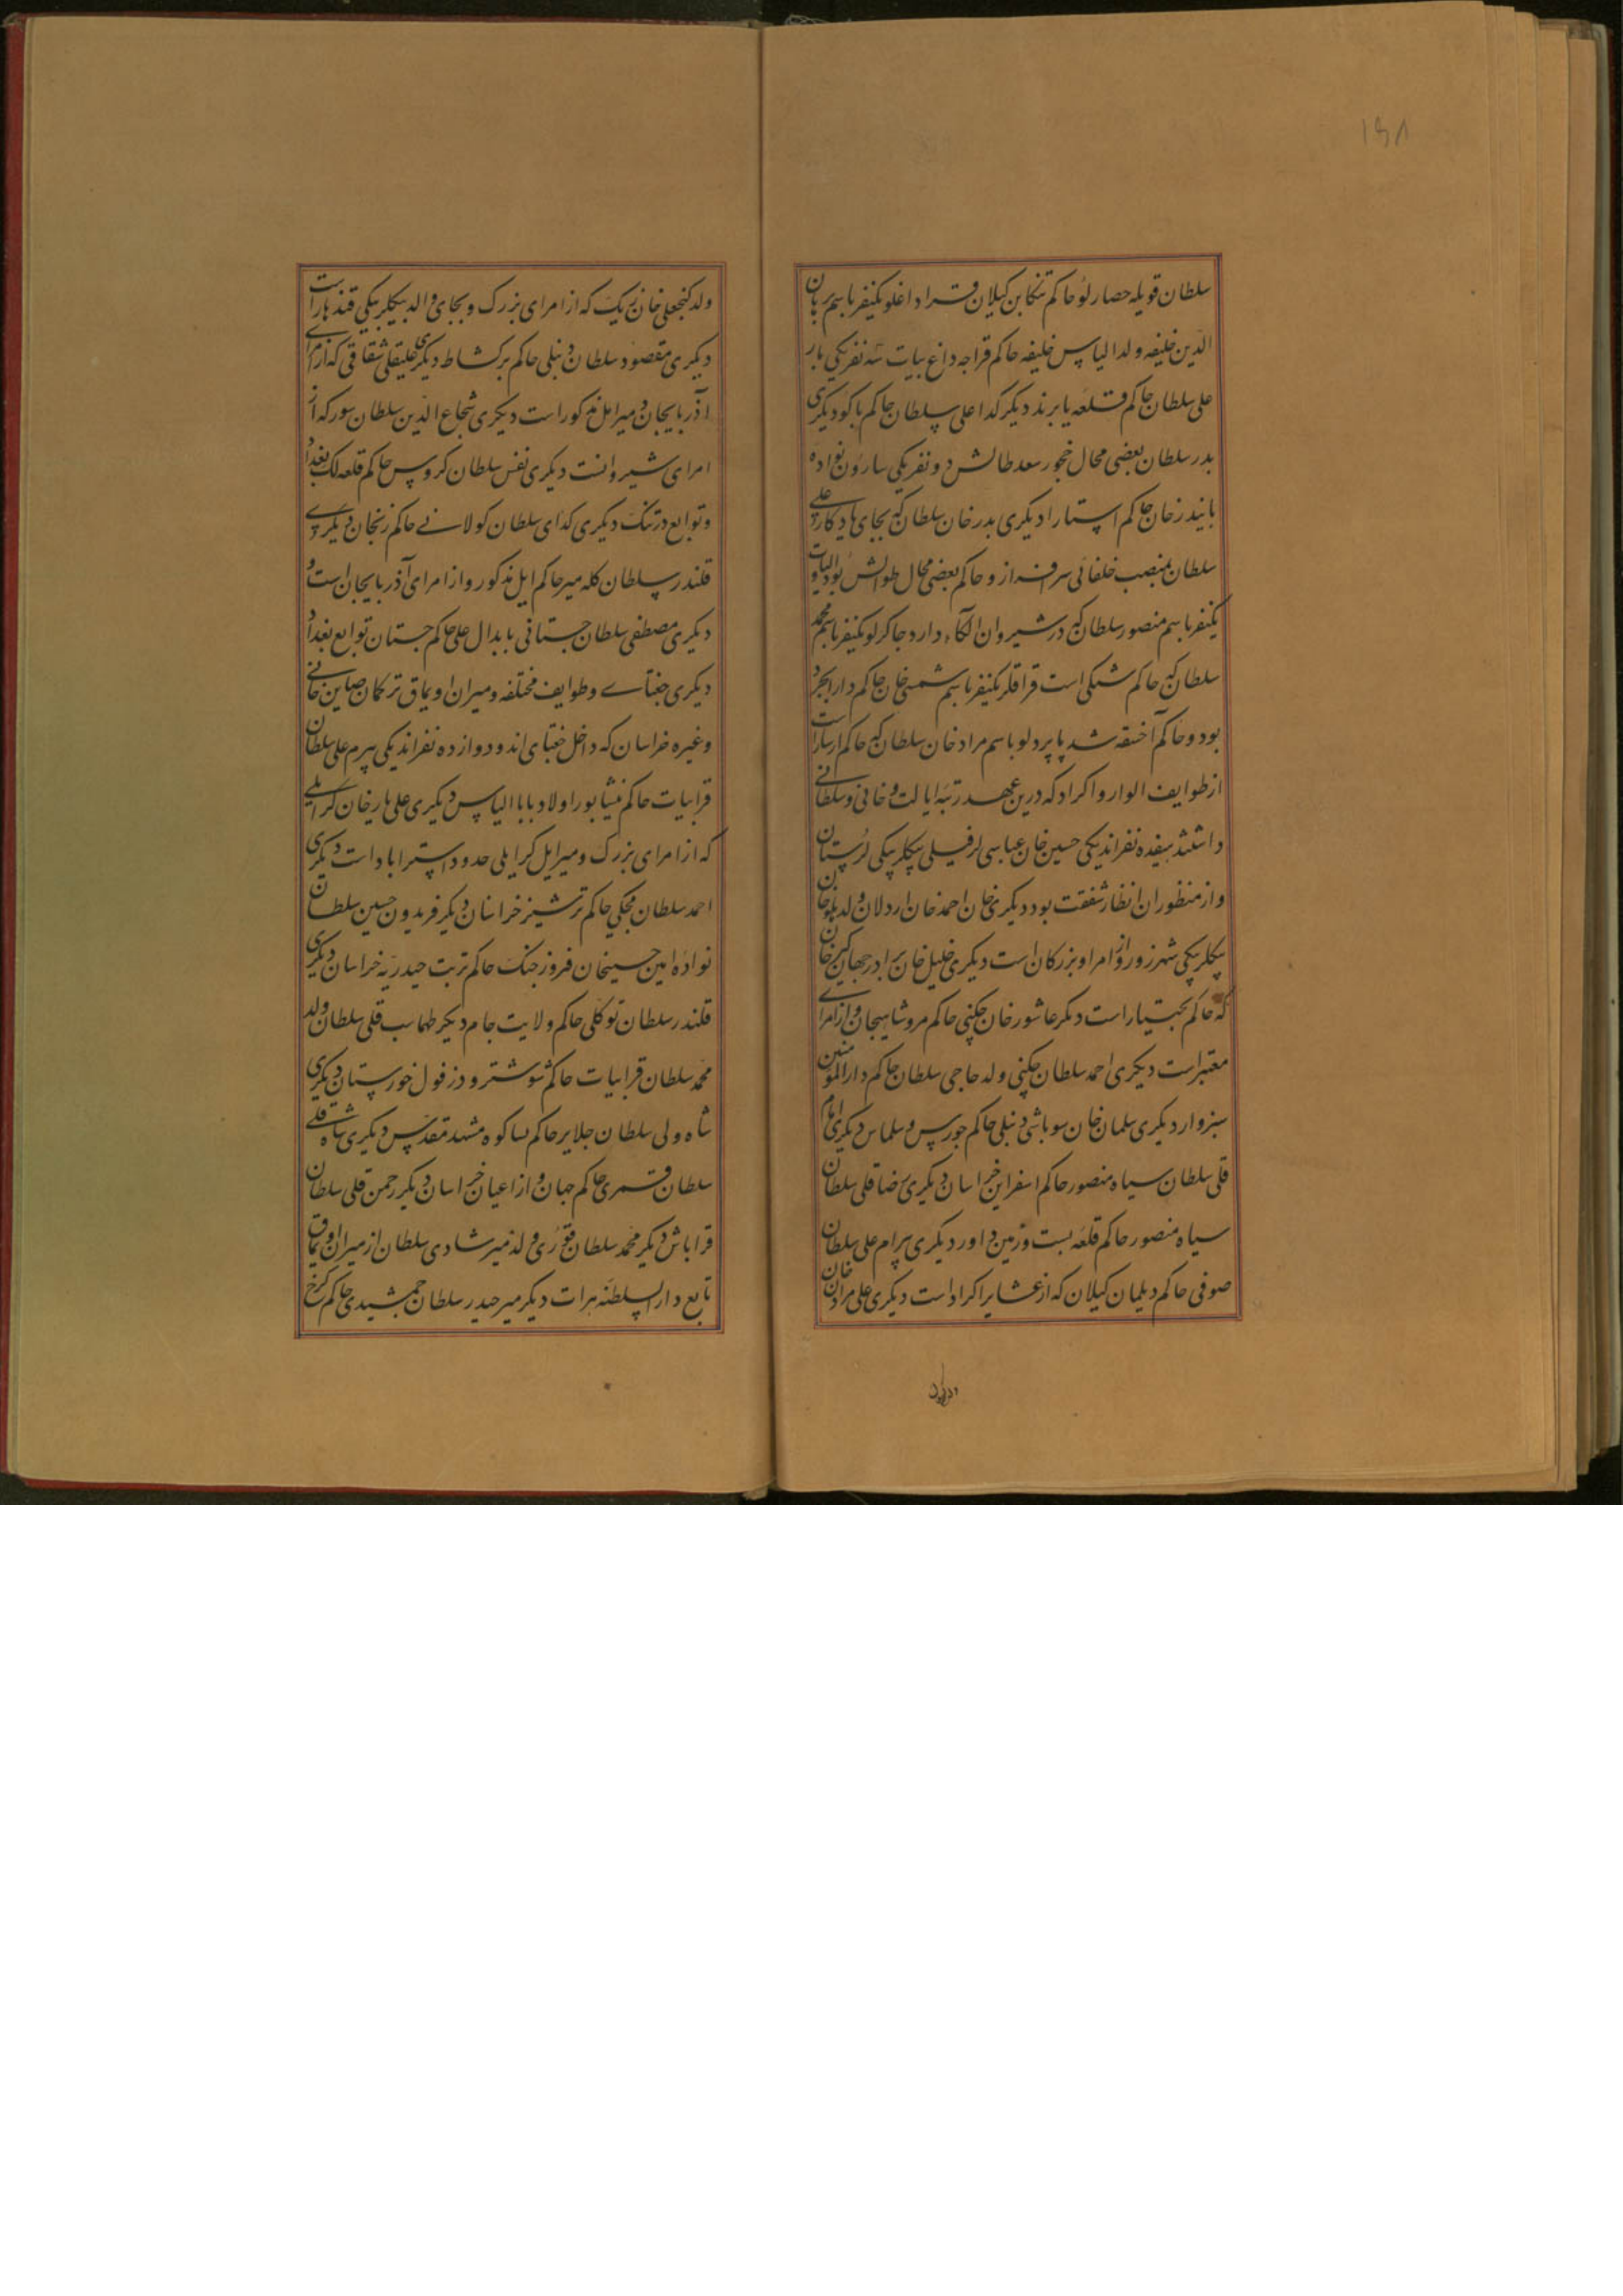 ۱۵۸
سلطان قویله حصارلو حاکم تنکابن کیلان قراداغلو یکنفر باسم برهان
الدین خلیفه ولد الیاس خلیفه حاکم قراجه داغ بیات سه نفر یکی یار
علی سلطان حاکم قلعه بایرند دیکر کدا علی سلطان حاکم باکو دیکری
بدر سلطان بعضی محال خجور سعد طالش دو نفر یکی ساروخان نواده
بایندر خان حاکم استارا دیکری بدر خان سلطان که بجای یادکار علی
سلطان بمنصب خلفائی سرافراز و حاکم بعضی محال طوالش بود الپاوت
یکنفر باسم منصور سلطان که در شیروان الکاء دارد جاکرلو یکنفر باسم محمد
سلطان که حاکم شکی است قراقلر یکنفر باسم شمسی خان حاکم دارابجرد
بود و حاکم آخسقه شد پاپردلو باسم مراد خان سلطان که حاکم ارسبار است
از طوایف الوار و اکراد که درین عهد رتبه ایالت و خانی و سلطانی
داشتند هیفده نفراند یکی حسین خان عباسی لر فیلی بیکلربیکی لرستان
و از منظوران انظار شفقت بود دیکری خان احمد خان اردلان ولد هلوخان
بیکلربیکی شهرزور و از امرا و بزرکان است دیکری خلیل خان برادر جهانکیر خان
که حاکم بختیار است دیکر عاشور خان چکنی حاکم مرو شاهیجان و از امرای
معتبر است دیکری احمد سلطان چکنی ولد حاجی سلطان حاکم دارالمومنین
سبزوار دیکری سلمان خان سوباشی دنبلی حاکم چورس و سلماس دیکری امام
قلی سلطان سیاه منصور حاکم اسفراین خراسان دیکری رضا قلی سلطان
سیاه منصور حاکم قلعه بست و زمین داور دیکری بیرام علی سلطان
صوفی حاکم دیلمان کیلان که از عشایر اکراد است دیکری علی مردان خان
ولد کنجعلی خان زیک که از امرای بزرک و بجای والد بیکلربیکی قندهار است
دیکری مقصود سلطان دنبلی حاکم برکشاط دیکری علیقلی شقاقی که از امرای
آذربایجان و میر ایل مذکور است دیکری شجاع الدین سلطان سور که از
امرای شیروانست دیکری نفس سلطان کروس حاکم قلعه لک بغداد
و توابع درتنک دیکری کدای سلطان کولانی حاکم زنجان دیکری
قلندر سلطان کله میر حاکم ایل مذکور و از امرای آذربایجان است و
دیکری مصطفی سلطان جستانی بابدال علی حاکم جستان توابع بغداد
دیکری جغتای و طوایف مختلفه و میران اویماق ترکمان صاین خانی
و غیره خراسان که داخل جغتای اند و دوازده نفراند یکی بیرم علی سلطان
قرابیات حاکم نیشابور اولاد بابا الیاس دیکری علی یار خان کرایلی
که از امرای بزرک و میر ایل کرایلی حدود استراباد است دیکری
احمد سلطان مجکی حاکم ترشیز خراسان دیکر فریدون حسین سلطان
نواده امین حسینخان فروزجنک حاکم تربت حیدریه خراسان دیکری
قلندر سلطان توکلی حاکم ولایت جام دیکر طهماسب قلی سلطان ولد
محمد سلطان قرابیات حاکم شوشتر و دزفول خورستان دیکری
شاه ولی سلطان جلایر حاکم نساکوه مشهد مقدس دیکری شاه قلی
سلطان قمری حاکم جهان و از اعیان خراسان دیکر رحمن قلی سلطان
قراباش دیکر محمد سلطان قتوری ولد میر شادی سلطان از میران اویماق
تابع دارالسلطنه هرات دیکر میر حیدر سلطان جمشیدی حاکم کرخ